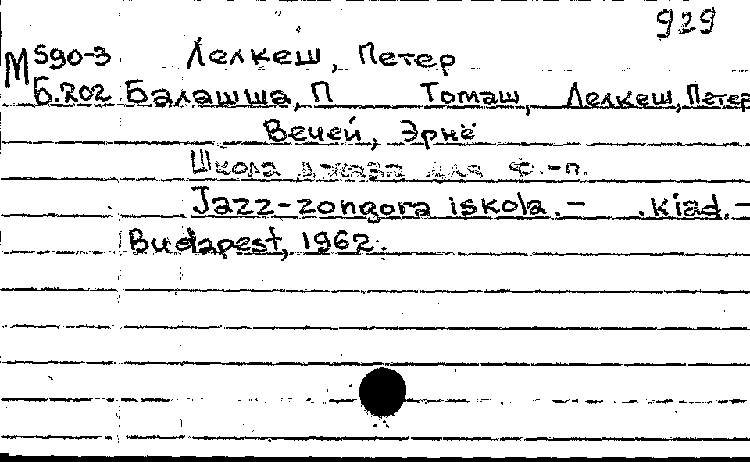 929
М590-3 Лелкеш, Петер
Б.202 Балашша, П Томаш, Лелкеш, Петер
Вечей, Эрнё
Школа джаза для ф.-п.
Jazz-zongora iskola. – .kiad.–
Budapest, 1962.